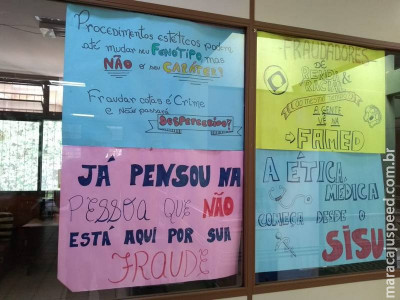 Procedimentos estéticos podem
até mudar seu FENÓTIPO, mas
NÃO o seu CARÁTER!
Fraudar cotas é Crime
DESPERCEBIDO!
JÁ PENSOU NA
PESSOA QUE NÃO
ESTÁ AQUI POR SUA
FRAUDE
FRAUDADORES
DE RENDA &
RACIAL
A GENTE
SE VÊ NA
FAMED
A ÉTICA
MÉDICA
COMEÇA DESDE O
SISU
maracajuspeed.com.br